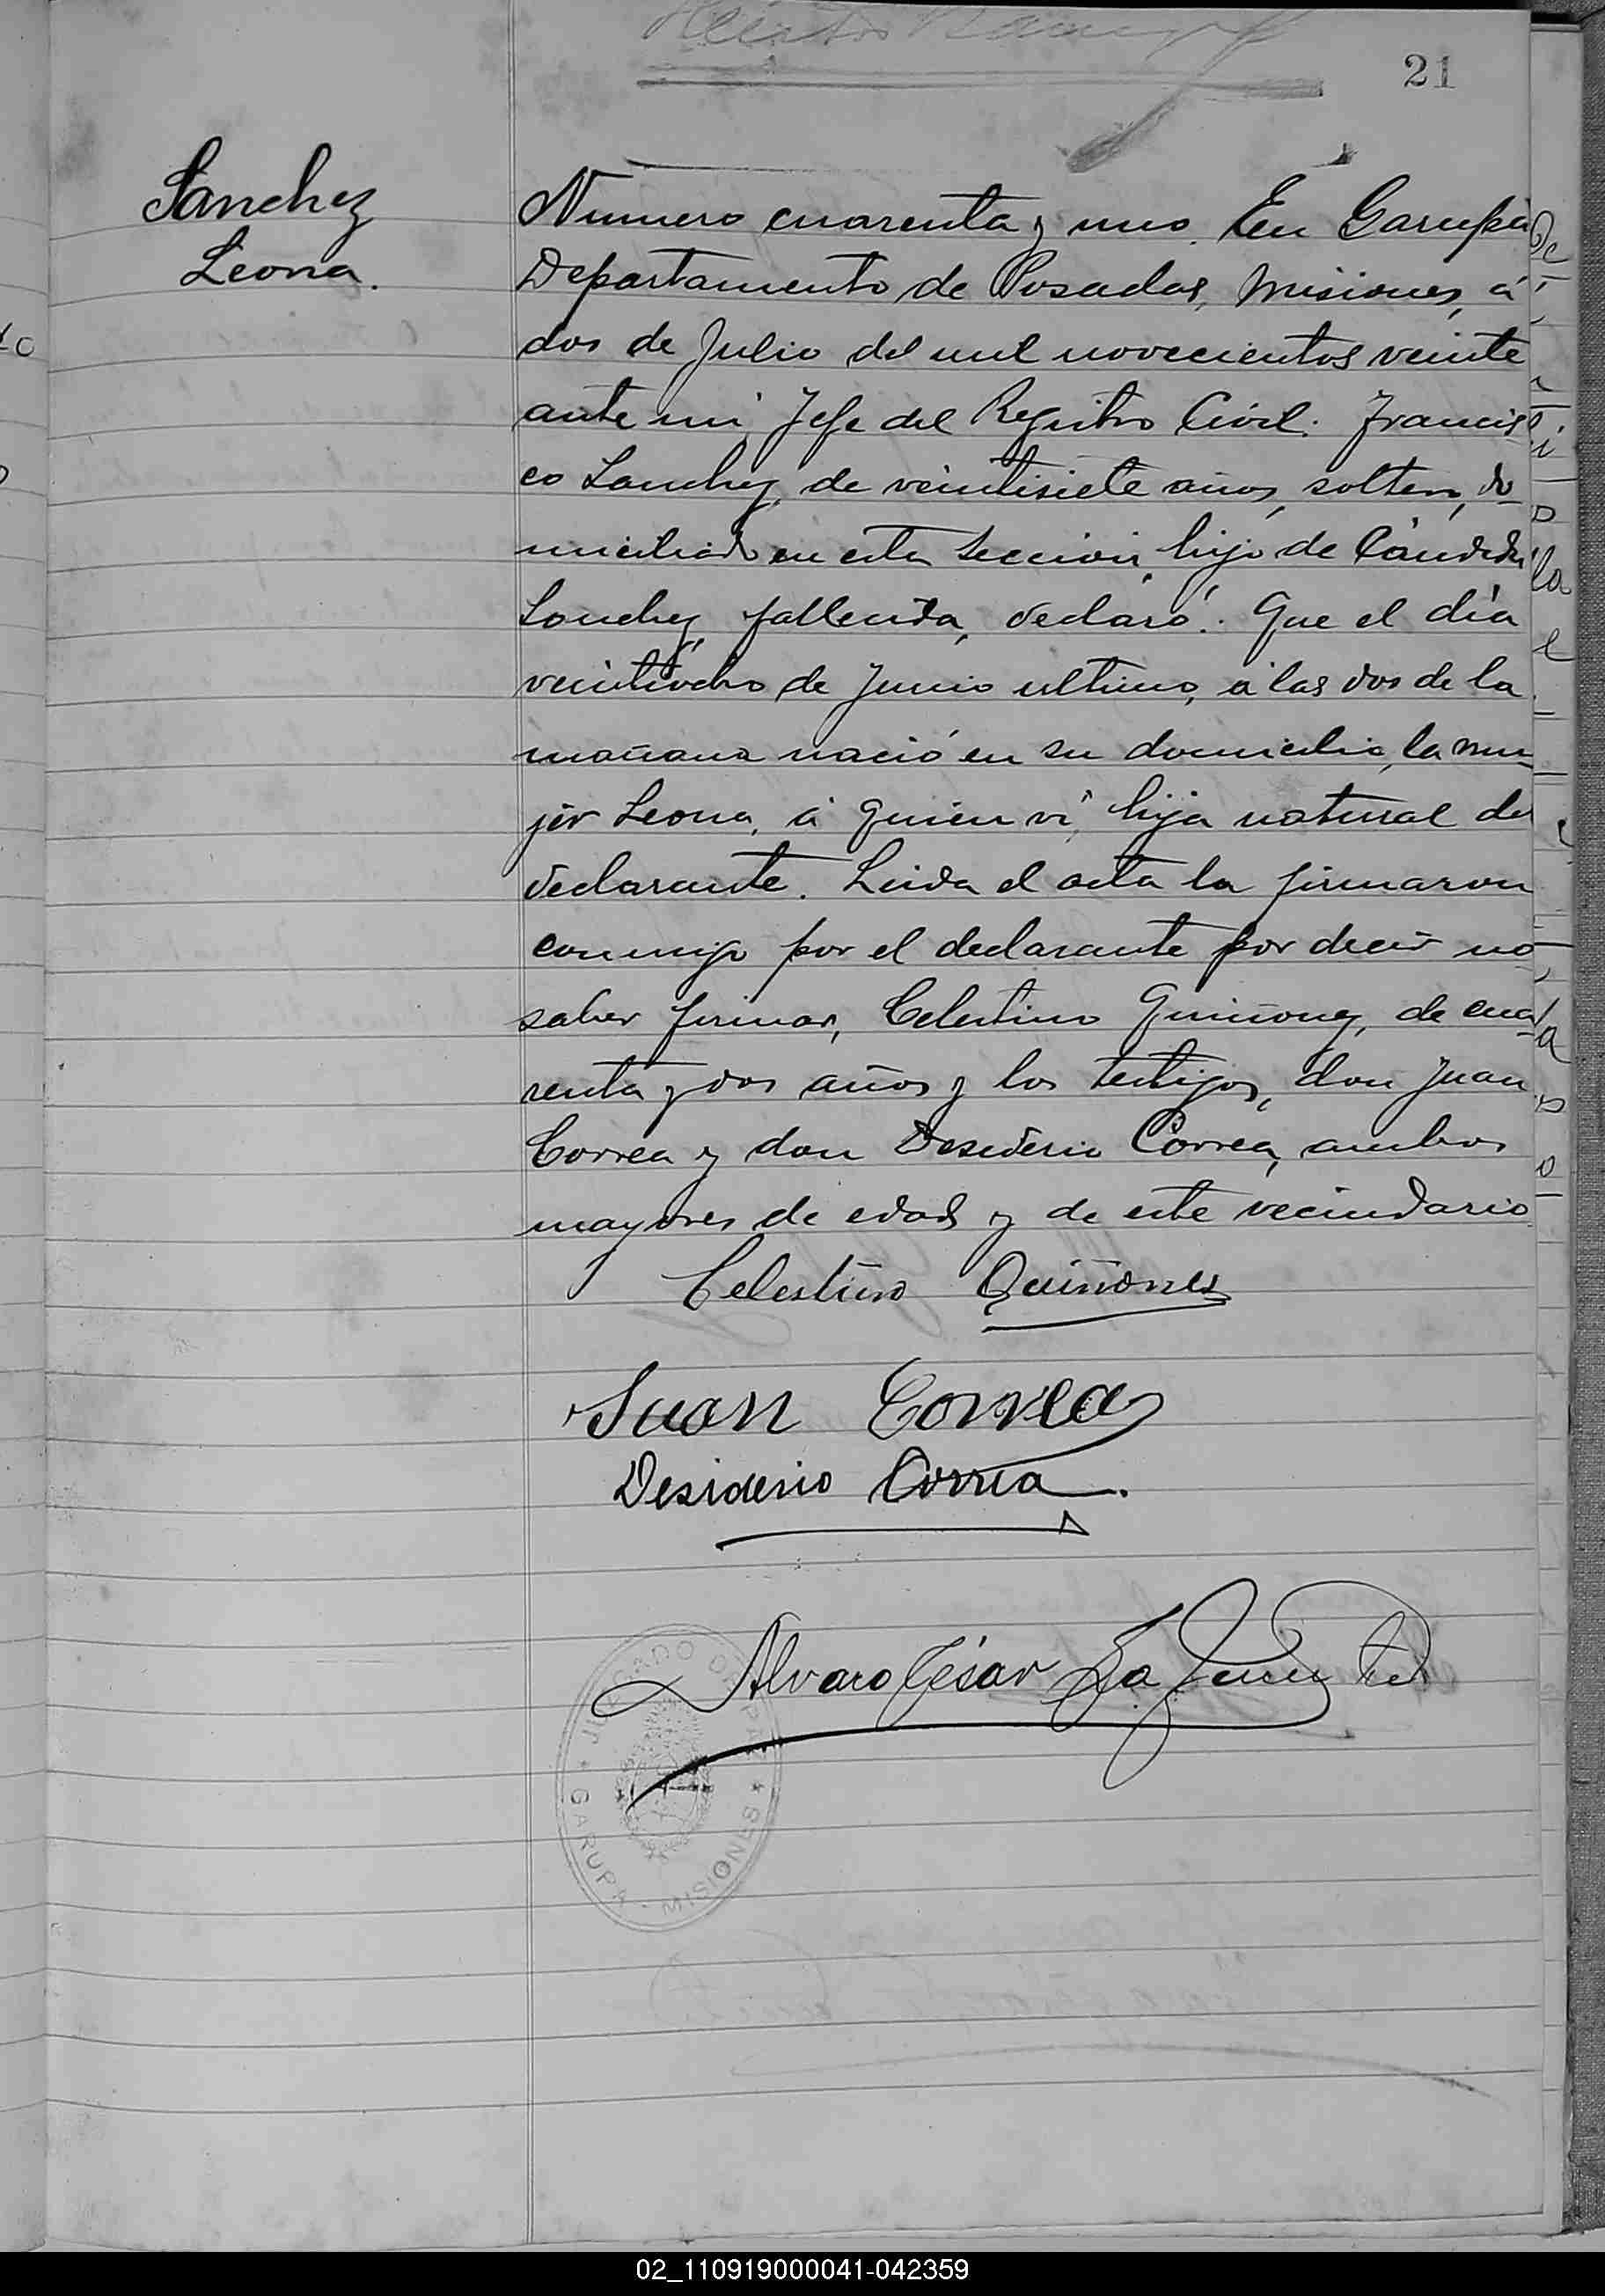 21
Sanchez
Leona.
Numero cuarenta y uno. En Garupá
Departamento de Posadas, Misiones, á
dos de Julio del mil novecientos veinte
ante mi Jefe del Registro Civil: Francis
co Sanchez, de veintisiete años, soltero, do-
miciliado en esta Sección, hijo de Cándida
Sanchez, fallecida, declaró: Que el día
veintiocho de Junio ultimo, á las dos de la
mañana nació en su domicilio, la mu-
jer Leona, á quien ví, hija natural del
declarante. Leida el acta la firmaron
conmigo por el declarante por decir no
saber firmar, Celestino Quiñonez, de cua-
renta y dos años y los testigos, don Juan
Correa y don Desiderio Correa, ambos
mayores de edad y de este vecindario
Celestino Quiñones
Juan Correa
Desiderio Correa.
Alvaro César La Fuente
JUZGADO DE PAZ
GARUPA - MISIONES
02_110919000041-042359